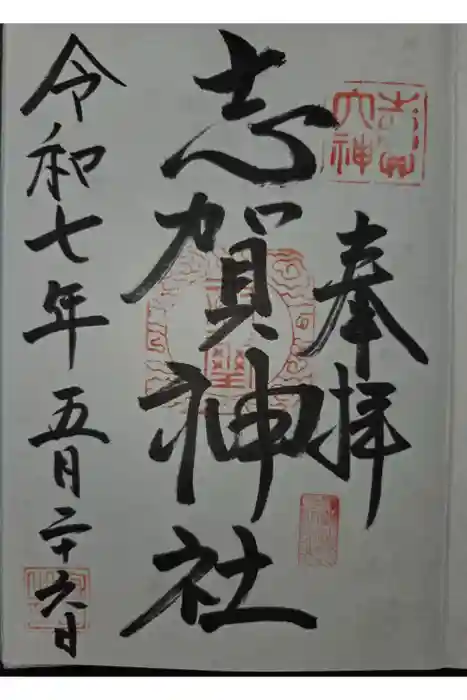 奉拝
志賀神社
令和七年五月二十六日